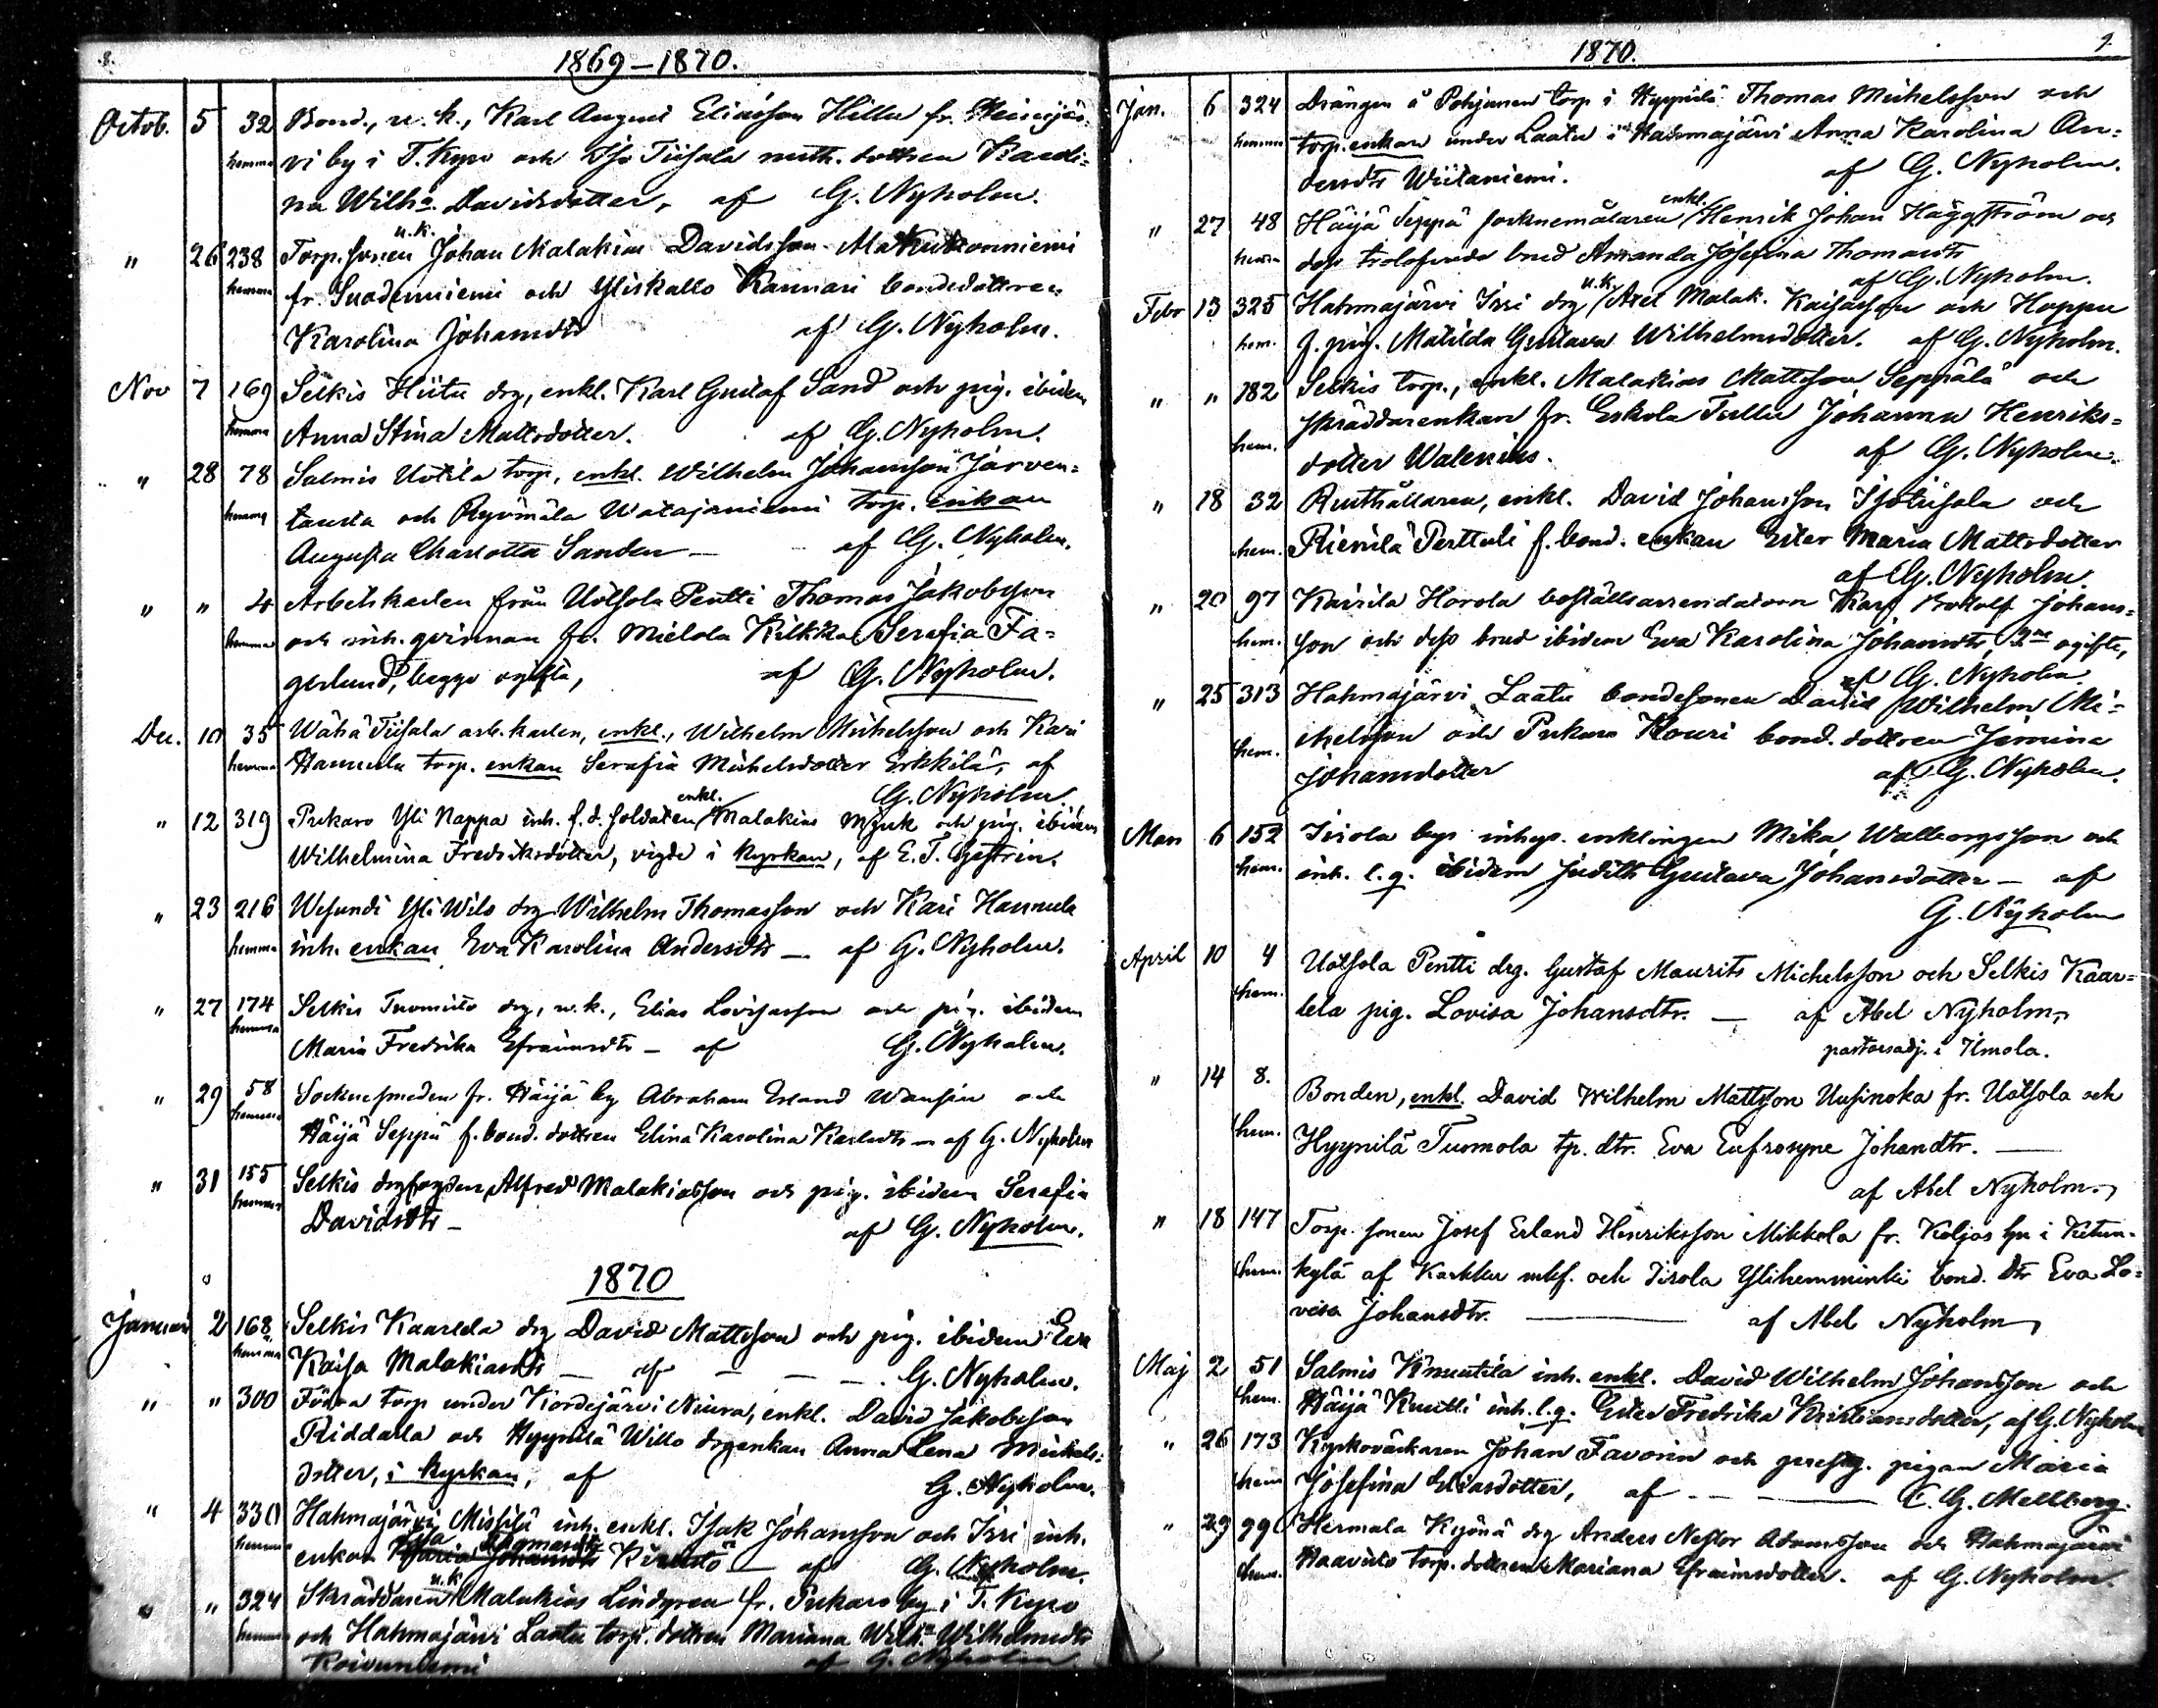 8.
1869–1870.
Octob. 5 32 Bond., u. k., Karl August Eliasson Hillu fr. Heinijär-
hemma vi by i T. Kyro och Iso Tiisala rusth. dottren Karoli-
na Wilh:a Davidsdotter, af G. Nyholm.
u.k.
" 26 238 Torp. sonen Johan Malakias Davidsson
hemma fr. Suodenniemi och Yliskallo Rannari bondedottren
Karolina Johansdtr af G. Nyholm.
Nov 7 169 Selkis Hiitu drg, enkl. Karl Gustaf Sand och pig. ibidem
hemma Anna Stina Mattsdotter. af G. Nyholm.
" 28 78 Salmis Uotila torp., enkl. Wilhelm Johansson Järven-
hemma tausta och Ryömälä Watajaniemi torp. enkan
Augusta Charlotta Sander — af G. Nyholm.
" " 4 Arbetskarlen från Uotsola Pentti Thomas Jakobsson
hemma och inh. qvinnan fr. Mielola Kilkka Serafia Fa-
gerlund, begge ogifta, af G. Nyholm.
Dec. 10 35 Wähä Tiisala arb. karlen, enkl., Wilhelm Michelsson och Kari
hemma Hannula torp. enkan Serafia Michelsdotter Erkkilä, af
G. Nyholm.
enkl.
" 12 319 Pukaro Yli Nappa inh. f. d. soldaten Malakias Mjuk och pig. ibidem
Wilhelmina Fredriksdotter, vigde i kyrkan, af E. T. Gestrin.
" 23 216 Wesundi Yli Wils drg Wilhelm Thomasson och Kari Hannula
hemma inh. enkan Eva Karolina Andersdtr — af G. Nyholm.
" 27 174 Selkis Tuomisto drg, u. k., Elias Lovisasson och pig. ibidem
hemma Maria Fredrika Efraimsdtr — af G. Nyholm.
" 29 58 Sockensmeden fr. Häijä by Abraham Erland Wansén och
hemma Häijä Seppä f. bond. dottren Elina Karolina Karlsdtr — af G. Nyholm
" 31 155 Selkis drgfogden Alfred Malakiasson och pig. ibidem Serafia
hemma Davidsdtr — af G. Nyholm.
1870
Januari 2 168 Selkis Kaarlela drg David Mattsson och pig. ibidem Eva
hemma Kaisa Malakiasdtr — af — — —. G. Nyholm.
" " 300 torp under Kordejärvi Niura, enkl. David Jakobsson
Riddala och Hyynilä Willo drgenkan Anna Lena Michels-
dotter, i kyrkan, af G. Nyholm.
" 4 330 Hahmajärvi Missilä inh. enkl. Isak Johansson och Issi inh.
hemma enkan — af G. Nyholm.
u.k.
" " 324 Skräddaren Malakias Lindgren fr. Pukaro by i T. Kyro
hemma och Hahmajärvi Laatu torp. dottren Mariana Wilh:a Wilhelmsdtr
Koivuniemi af G. Nyholm
9.
1870.
Jan. 6 324 Drängen å Pohjanen torp i Hyynilä Thomas Michelsson och
hemma torp. enkan under Laatu i Hahmajärvi Anna Karolina An-
dersdtr Wiitaniemi. af G. Nyholm.
enkl.
" 27 48 Häijä Seppä socknemålaren Henrik Johan Häggström och
hemma dess trolofvade brud Amanda Josefina Thomasdtr
af G. Nyholm.
u.k.
Febr 13 325 Hahmajärvi Issi drg Axel Malak. Kaisasson och Hoppu
hem. f. pig. Matilda Gustava Wilhelmsdotter. af G. Nyholm.
" " 182 Selkis torp., enkl. Malakias Mattsson Seppälä och
hem. skräddarenkan fr. Eskola Tullu Johanna Henriks-
dotter Walenius. af G. Nyholm.
" 18 32 Rusthållaren, enkl. David Johansson Isotiisala och
hem. Rienilä Perttuli f. bond. enkan Ester Maria Mattsdotter
af G. Nyholm.
" 20 97 Kairila Horola boställsarrendatorn Karl Rudolf Johans-
hem. son och dess brud ibidem Eva Karolina Johansdtr, 2ne ogifte,
af G. Nyholm.
" 25 313 Hahmajärvi Laatu bondesonen David Wilhelm Mi-
hem. chelsson och Pukaro Kouri bond. dottren Jemina
Johansdotter af G. Nyholm.
Mars 6 152 Iirola bys inhys. enklingen Mika Walborgsson och
hem. inh. l. q. ibidem Judith Gustava Johansdotter — af
G. Nyholm
April 10 4 Uotsola Pentti drg. Gustaf Maurits Michelsson och Selkis Kaar-
hem. lela pig. Lovisa Johansdtr. — af Abel Nyholm,
pastorsadj. i Ilmola.
" 14 8. Bonden, enkl. David Wilhelm Mattsson Uusinoka fr. Uotsola och
hem. Hyynilä Tuomola tp. dtr. Eva Eufrosyne Johandtr. —
af Abel Nyholm.
" 18 147 Torp. sonen Josef Erland Henriksson Mikkola fr. Koljas hn i Ketun-
hem. kylä af Karkku mkf. och Iirola Ylihemminki bond. dtr Eva Lo-
visa Johansdtr. — af Abel Nyholm
Maj 2 51 Salmis Knuutila inh. enkl. David Wilhelm Johansson och
hem. Häijä Knutti inh. l. q. Ester Fredrika Kristiansdotter, af G. Nyholm
" 26 173 Kyrkoväktaren Johan Favorin och pigan Maria
hem Josefina Eliasdotter, af — — C. G. Mellberg.
" 29 99 Hermala Kyönä drg Anders Nestor Adamsson och Hahmajärvi
hem. Haavisto torp. dottren Mariana Efraimsdotter. af G. Nyholm.